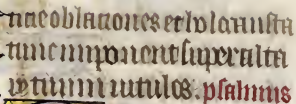 tiae oblationes et holocausta
tunc imponent super alta
re tuum uitulos. psalmus